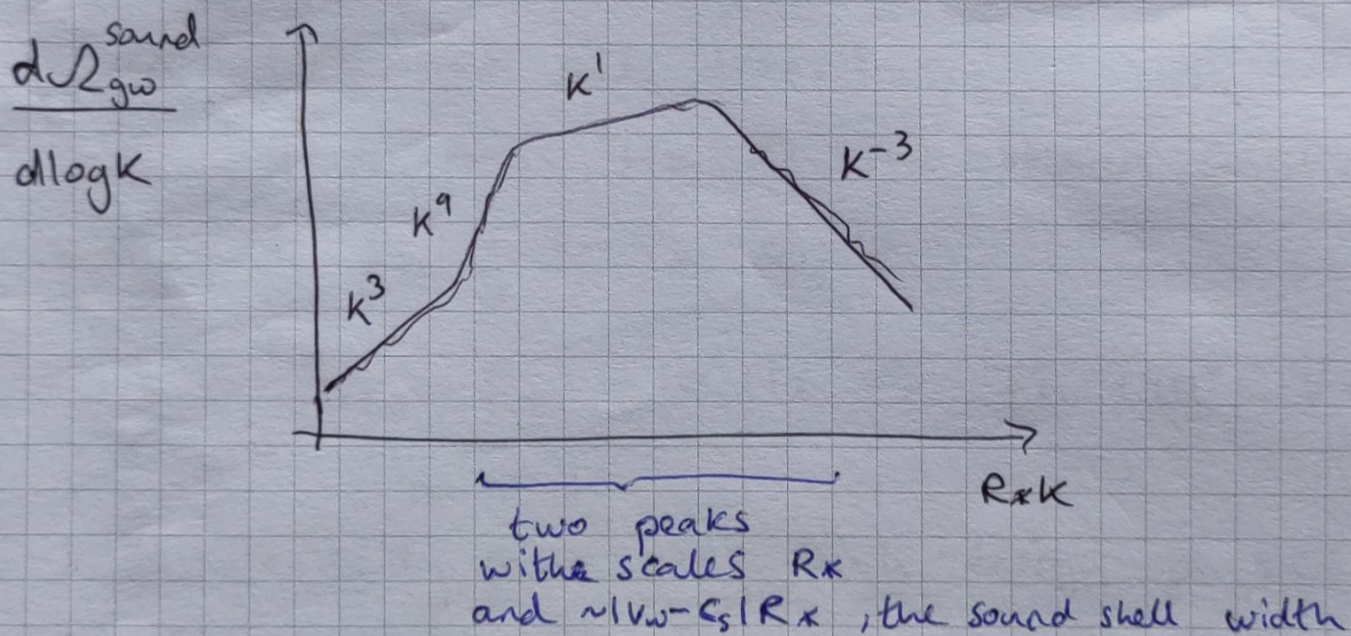 dΩ_gw^sound
dlogk
k^3
k^9
k^1
k^-3
R*k
two peaks
with scales R*
and ~|v_w-c_s|R*, the sound shell width